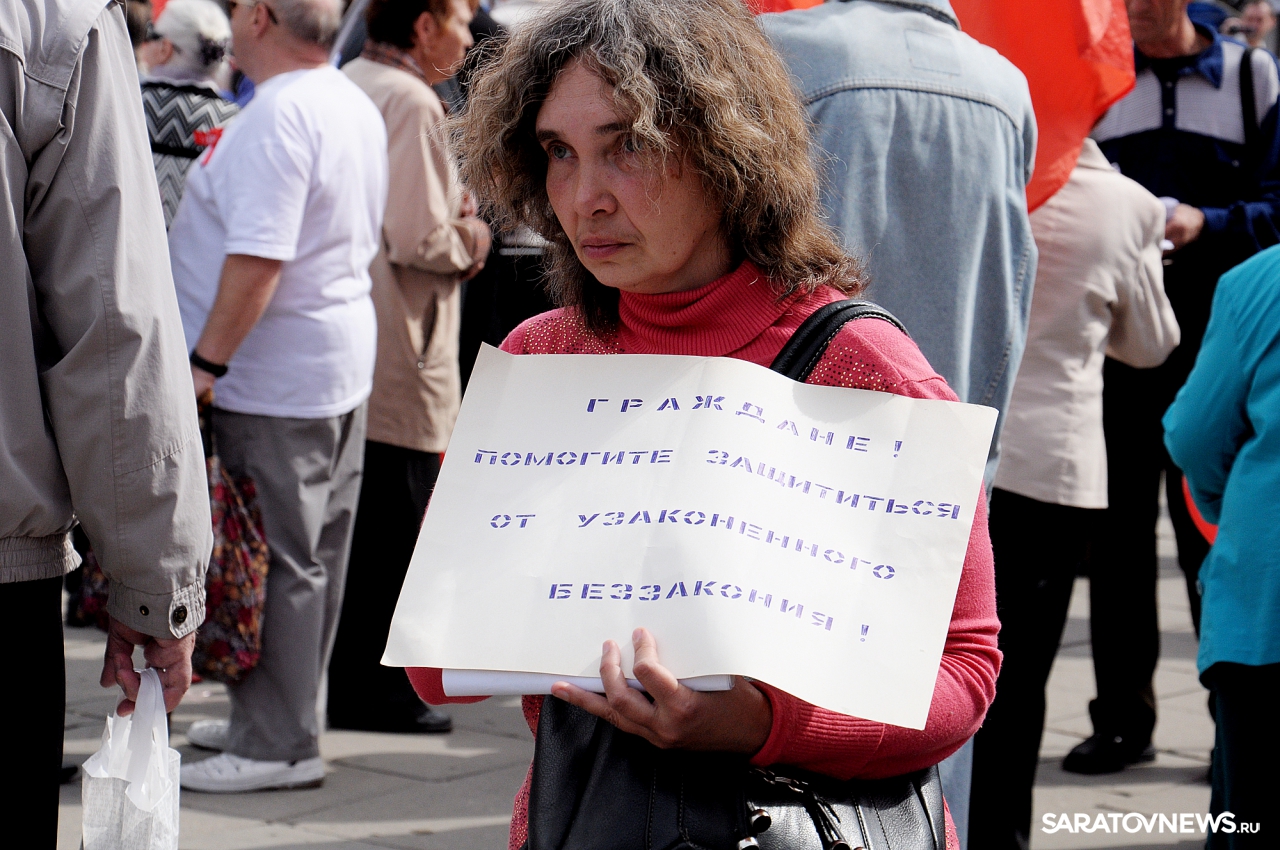 ГРАЖДАНЕ!
ПОМОГИТЕ ЗАЩИТИТЬСЯ
ОТ УЗАКОНЕННОГО
БЕЗЗАКОНИЯ!
SARATOVNEWS.RU